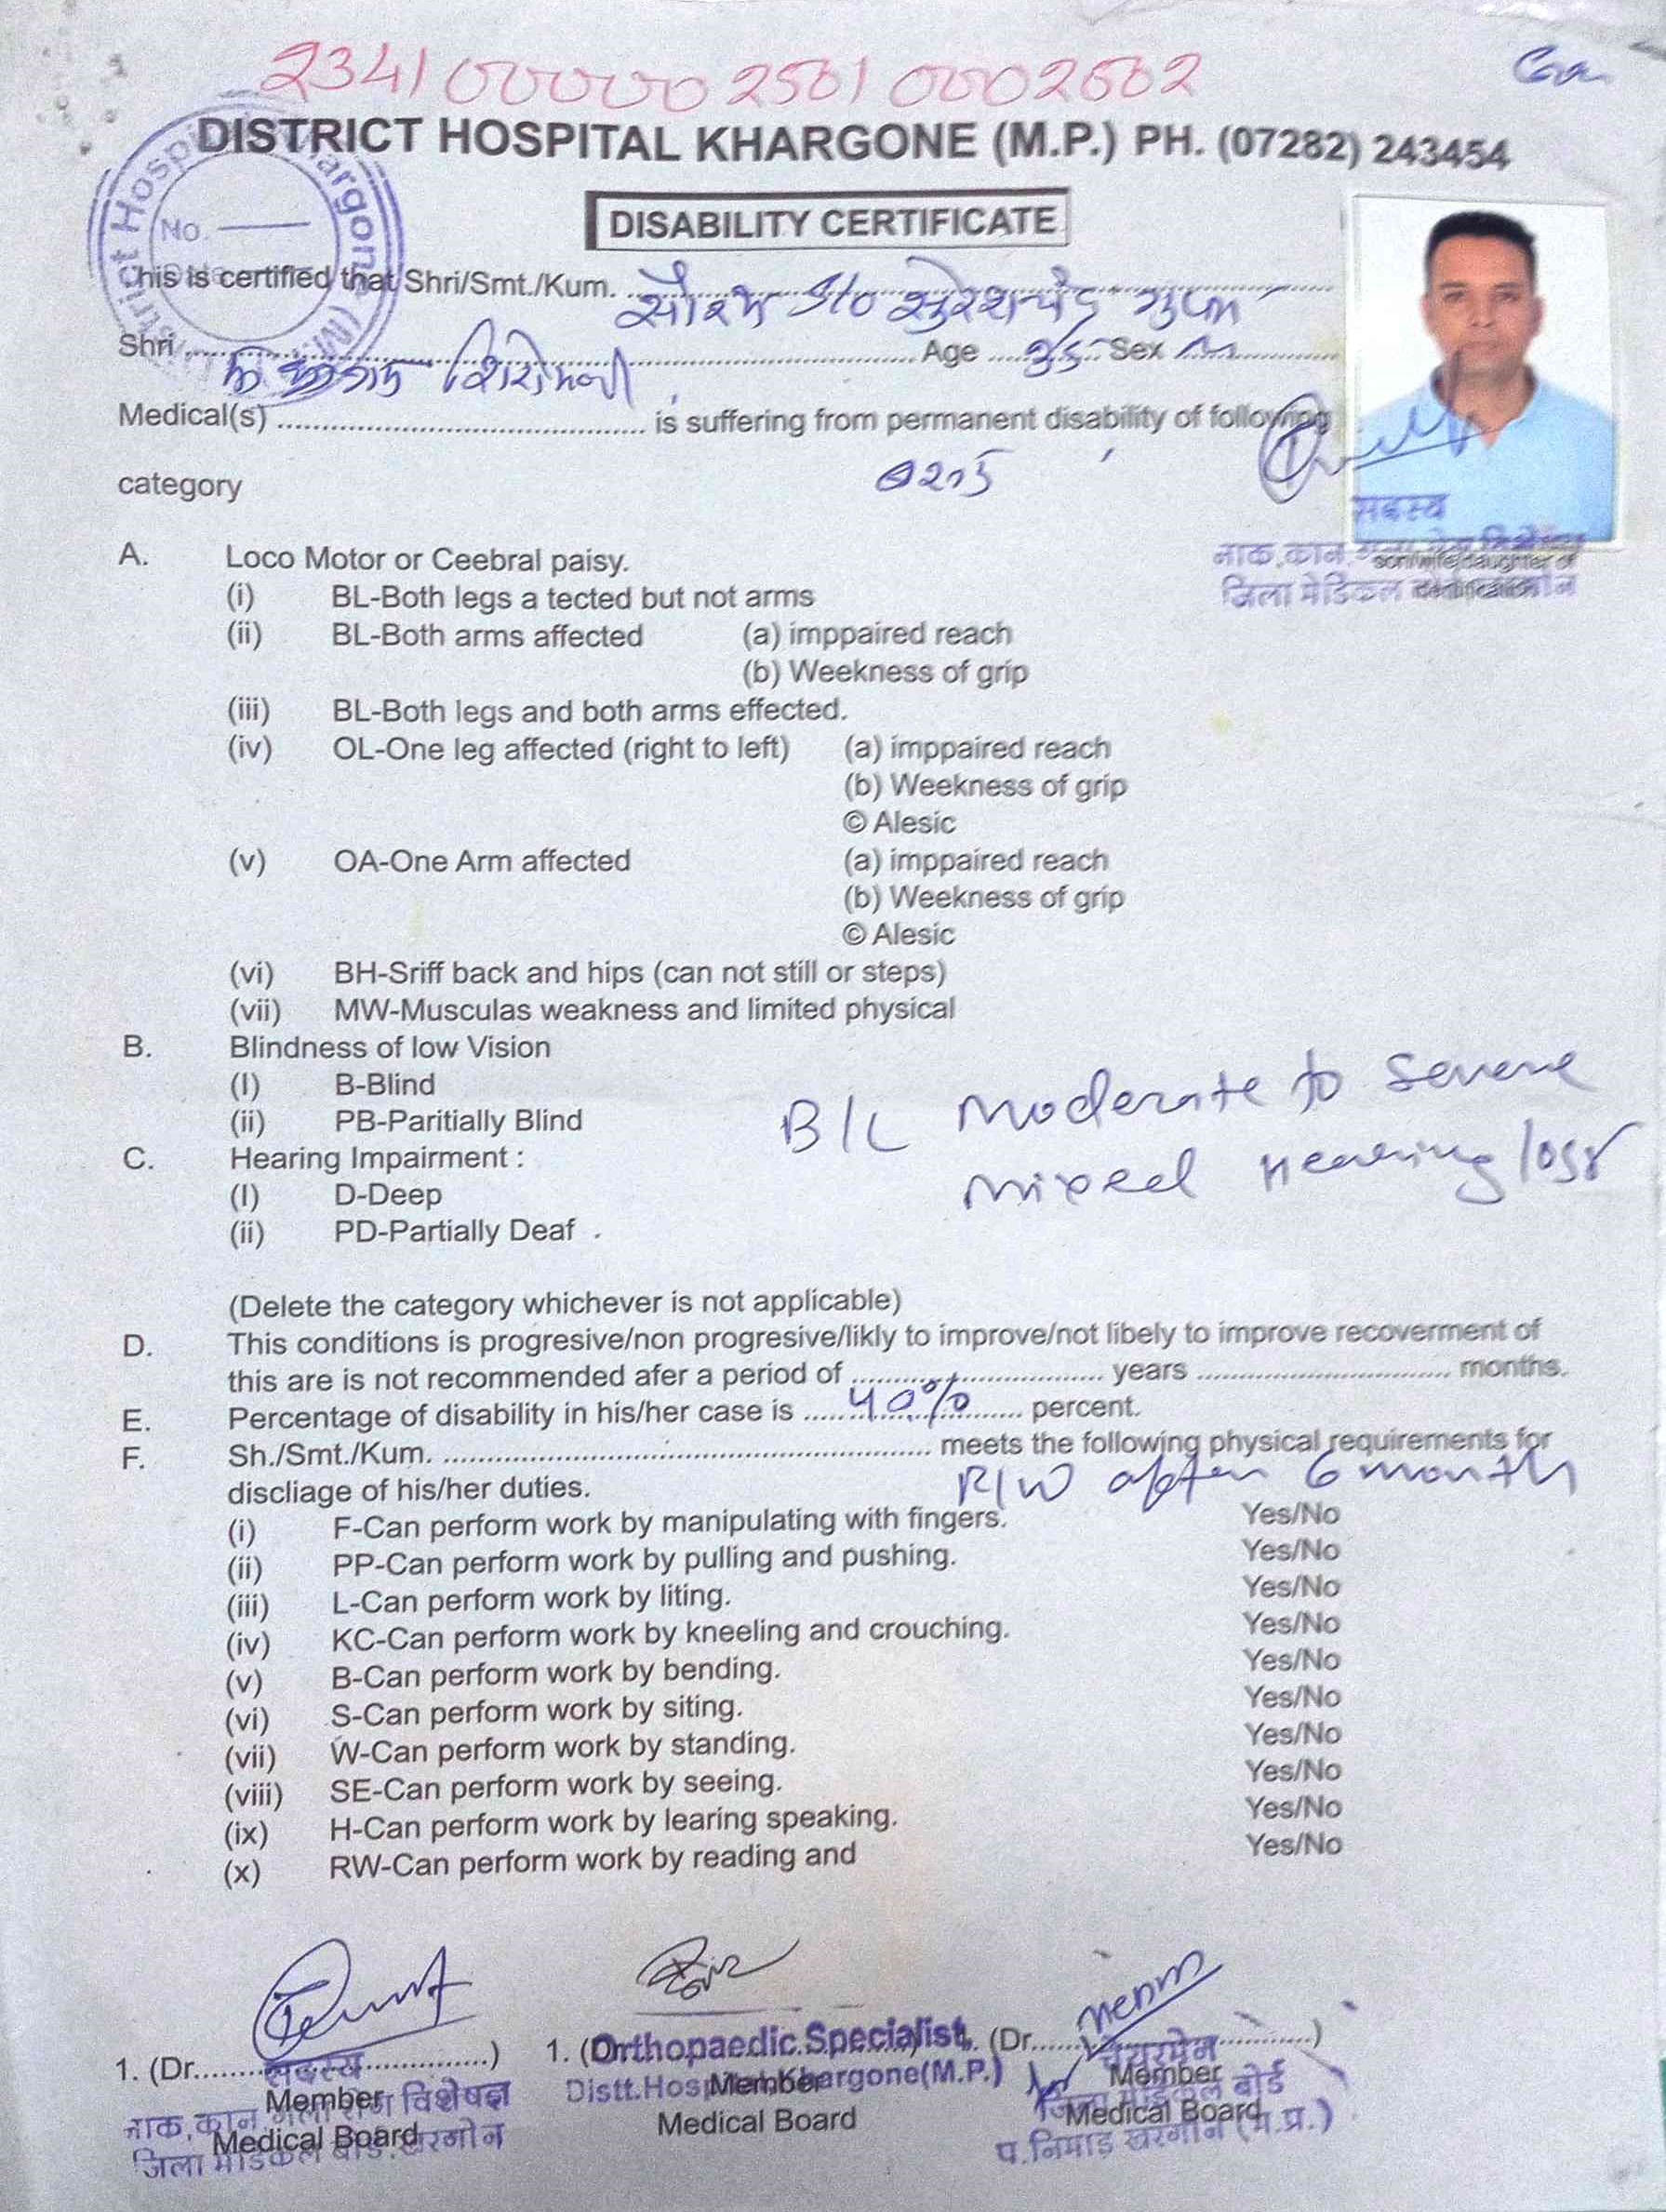 234100000025010002502
DISTRICT HOSPITAL KHARGONE (M.P.) PH. (07282) 243454
DISABILITY CERTIFICATE
No.
This is certified that Shri/Smt./Kum. सौरभ S/o सुरेशचंद्र गुप्ता
Shri Age 35 Sex M
Medical(s) is suffering from permanent disability of following
category
सदस्य
नाक,कान,
जिला मेडिकल
son/wife/daughter of
A. Loco Motor or Ceebral paisy.
(i) BL-Both legs a tected but not arms
(ii) BL-Both arms affected (a) imppaired reach
(b) Weekness of grip
(iii) BL-Both legs and both arms effected.
(iv) OL-One leg affected (right to left) (a) imppaired reach
(b) Weekness of grip
© Alesic
(v) OA-One Arm affected (a) imppaired reach
(b) Weekness of grip
© Alesic
(vi) BH-Sriff back and hips (can not still or steps)
(vii) MW-Musculas weakness and limited physical
B. Blindness of low Vision
(I) B-Blind
(ii) PB-Paritially Blind
B/L Moderate to severe
mixed Hearing loss
C. Hearing Impairment :
(I) D-Deep
(ii) PD-Partially Deaf .
(Delete the category whichever is not applicable)
D. This conditions is progresive/non progresive/likly to improve/not libely to improve recoverment of
this are is not recommended afer a period of years months.
E. Percentage of disability in his/her case is 40% percent.
F. Sh./Smt./Kum. meets the following physical requirements for
discliage of his/her duties. R/W after 6 month
(i) F-Can perform work by manipulating with fingers. Yes/No
(ii) PP-Can perform work by pulling and pushing. Yes/No
(iii) L-Can perform work by liting. Yes/No
(iv) KC-Can perform work by kneeling and crouching. Yes/No
(v) B-Can perform work by bending. Yes/No
(vi) S-Can perform work by siting. Yes/No
(vii) W-Can perform work by standing. Yes/No
(viii) SE-Can perform work by seeing. Yes/No
(ix) H-Can perform work by learing speaking. Yes/No
(x) RW-Can perform work by reading and Yes/No
1. (Dr. ) 1. (Orthopaedic Specialist, (Dr. )
सदस्य Distt.Hospital Khargone(M.P.) चेयरमेन
Member Member Member
नाक,कान,गला रोग विशेषज्ञ जिला मेडिकल बोर्ड
Medical Board Medical Board Medical Board
जिला मेडिकल बोर्ड,खरगोन प.निमाड़ खरगोन (म.प्र.)